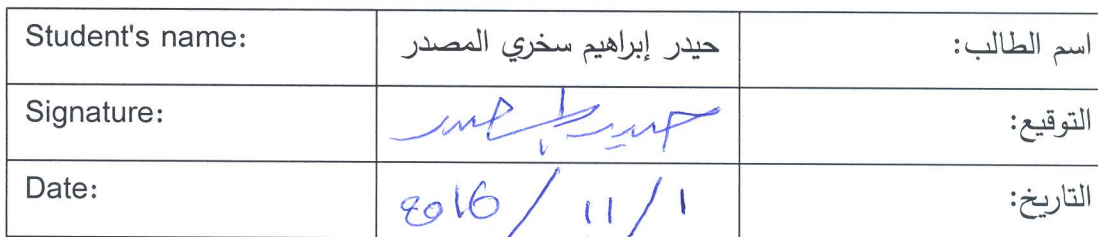 Student's name: حيدر إبراهيم سخري المصدر اسم الطالب:
Signature: التوقيع:
Date: 2016 / 11 / 1 التاريخ: